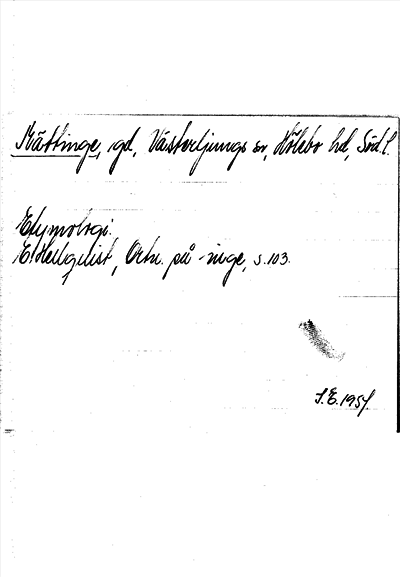 Mättinge, gd, Västerljungs sn, Hölebo hd, Södl.
Etymologi.
E. Hellquist, Ortn. på -inge, s. 103.
S.E. 1957.